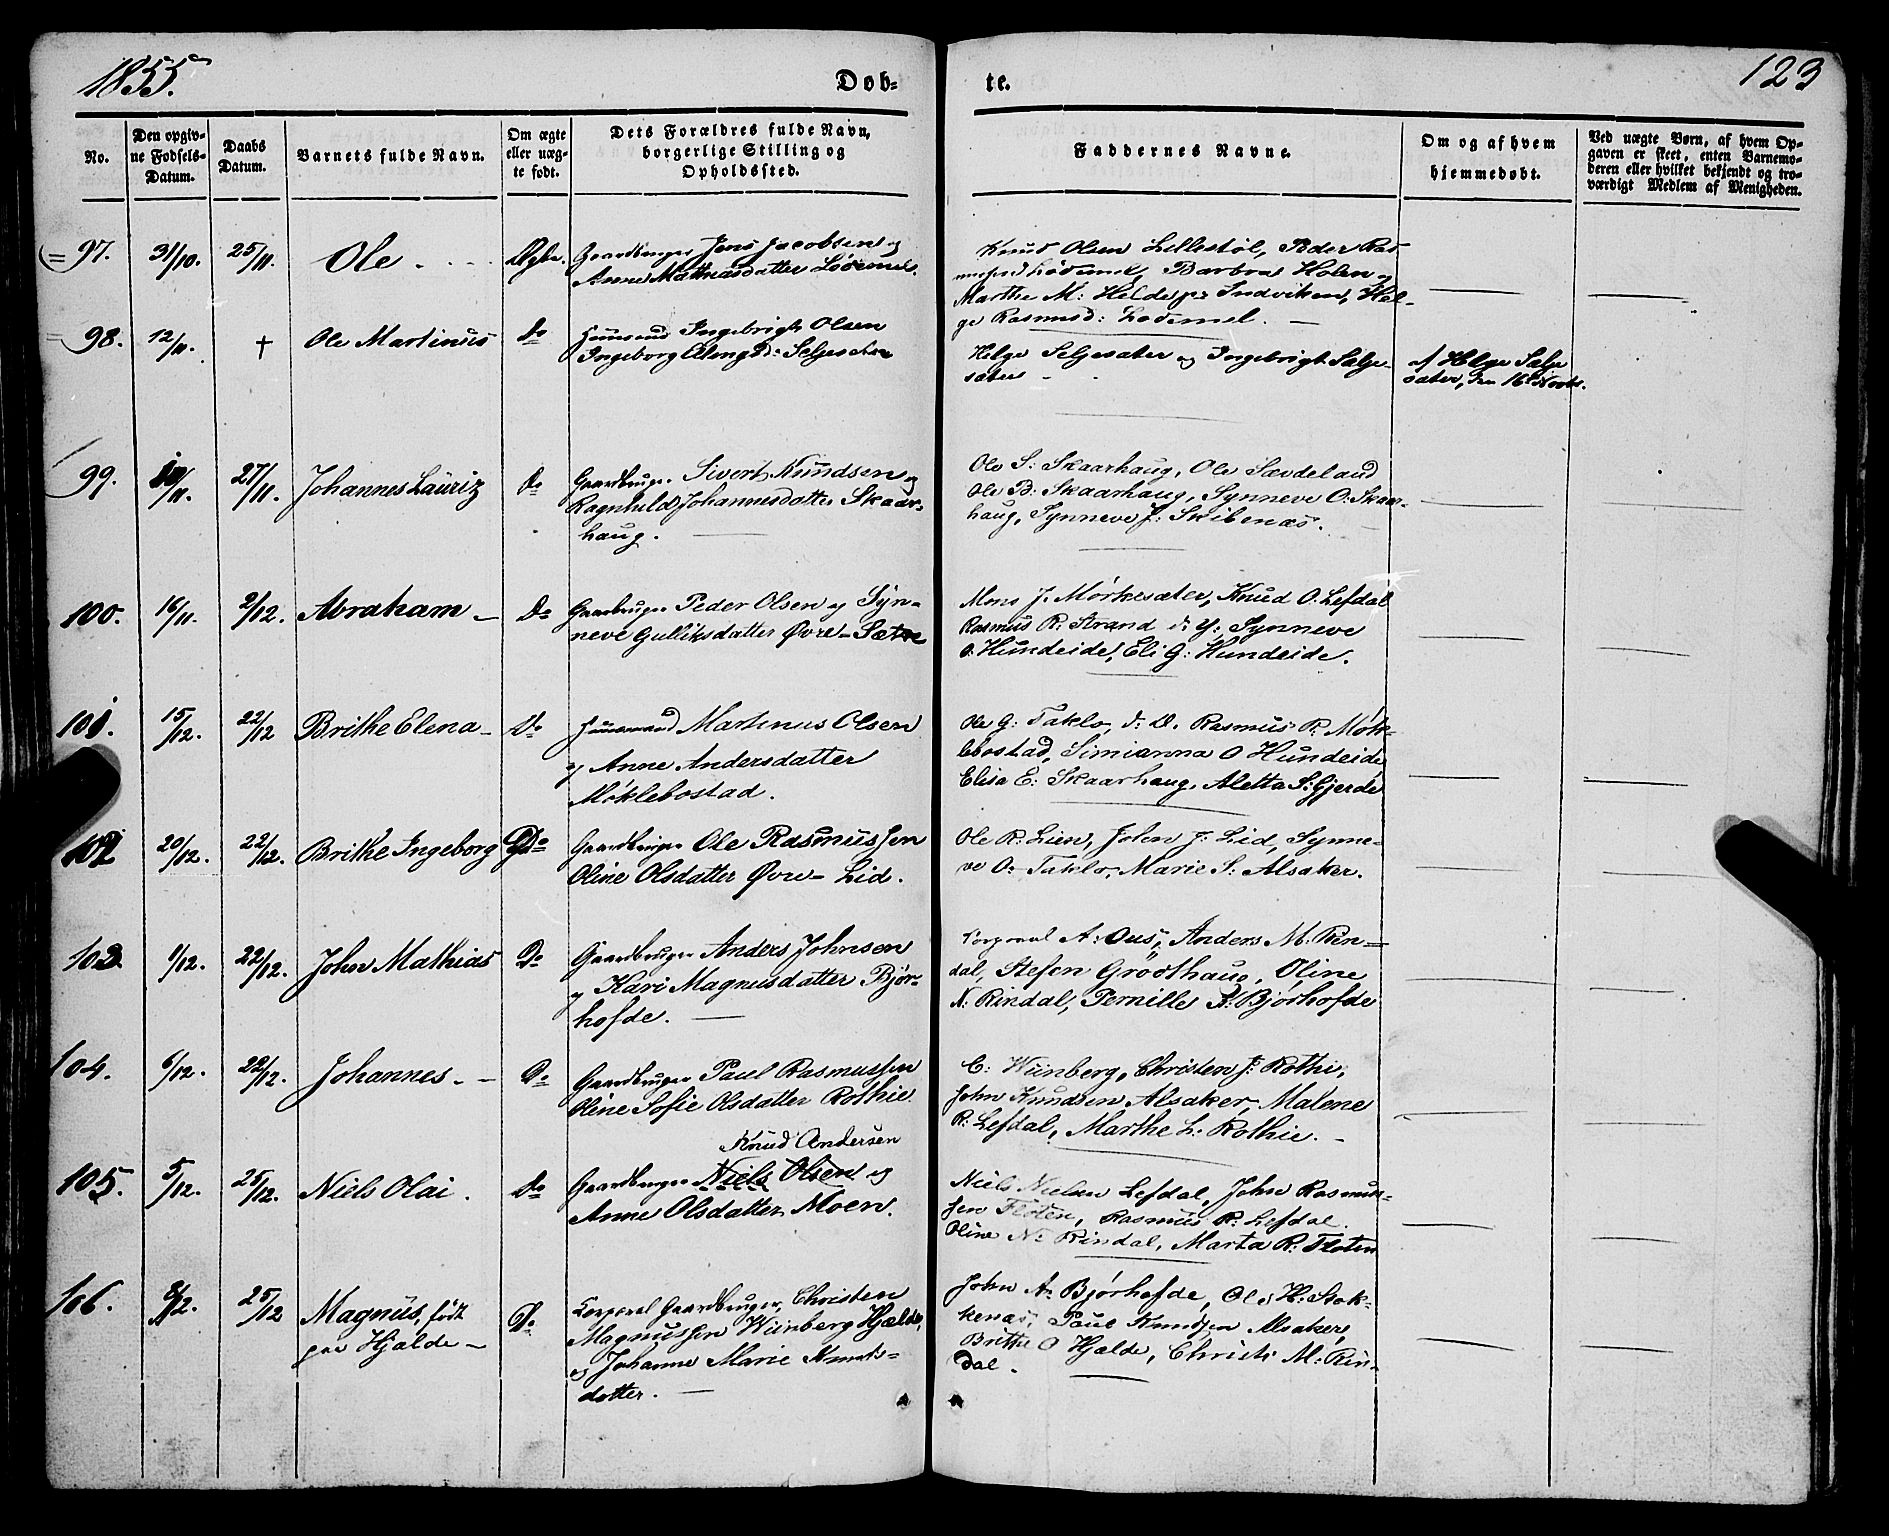 1855.
Døb-
te.
123
No.
Den opgiv-
ne Fødsels-
Datum.
Daabs
Datum.
Barnets fulde Navn.
Om ægte
eller uæg-
te født.
Dets Forældres fulde Navn,
borgerlige Stilling og
Opholdssted.
Faddernes Navne.
Om og af hvem
hjemmedøbt.
Ved uægte Børn, af hvem Op-
gaven er skeet, enten Barnemo-
deren eller hvilket bekjendt og tro-
værdigt Medlem af Menigheden.
97. 31/10. 25/11. Ole
Gaardbruger Jens Jacobsen og
Anne Mathiasdatter Lødemel.
Knud Olsen Lillestøl, Peder Ras-
Lødemel, Barbra Holen og
Marthe M: Helde Indviken, Hel-
ge Rasmusd: Lødemel.
98. 12/11. † Ole Martinus Do
Huusmand Ingebrigt Olsen
Ingeborg Seljesæter
Helge Seljesæter og Ingebrigt Selje-
sæter
af Helge Selje
sæter, den 16 Novbr.
99. 27/11. Johannes Lauriz Do
Gaardbruger Sivert Knudsen og
Ragnhild Johannesdatter Skaar-
haug.
Ole S: Skaarhaug, Ole Sævdeland
Ole B: Skaarhaug, Synneve O: Skaar-
haug, Synneve J: Skibenæs.
100. 16/11. 2/12. Abraham Do
Gaardbruger Peder Olsen og Syn-
neve Gulliksdatter Øvre-Sætre
Mons J. Mørkesæter, Knud O. Lefdal
Rasmus R. Strand d: y:, Synneve
O: Hundeide, Eli G: Hundeide.
101. 15/12. 22/12 Brithe Elena Do
Huusmand Martinus Olsen
og Anne Andersdatter
Møklebostad.
Ole G: Taklo, d: Æ. Rasmus R. Møk-
lebostad, Simianna O Hundeide
Elisa E: Skaarhaug, Aletta S: Gjerde
102 20/12. 22/12. Brithe Ingeborg Do
Gaardbruger Ole Rasmussen
Oline Olsdatter Øvre-Lid.
Ole R: Lien, John J: Lid, Synne-
ve O: Taklo, Marie S: Alsaker.
103. 1/12. 22/12. John Mathias Do
Gaardbruger Anders Johnsen
og Kari Magnusdatter Bjør-
hofde.
Corporal A: Ous, Anders M: Rin-
dal, Stefen Grodthaug, Oline
N: Rindal, Pernille Bjørhofde
104. 6/12. 22/12. Johannes Do
Gaardbruger Paul Rasmussen
Oline Sofie Olsdatter Rothie
C: Wiinberg, Christen J: Rothi,
John Knudsen Alsaker, Malene
R: Lefdal, Marthe L: Rothie.
Knud Andersen
105. 5/12. 25/12. Niels Olai. Do
Gaardbruger Niels Olsen og
Anne Olsdatter Moen.
Niels Nielsen Lefdal, John Rasmus-
sen Floten, Rasmus R: Lefdal.
Oline N: Rindal, Marta R: Floten
106. 25/12 Magnus, født
paa Hjælde Do
Corporal Gaardbruger, Christen
Magnussen Wiinberg Hjælde,
og Johanne Marie Knuts-
datter.
John A: Bjørhofde, Ole H: Stok-
kenæs, Paul Knudsen Alsaker,
Britha O Hjelde, Christi M: Rin-
dal.